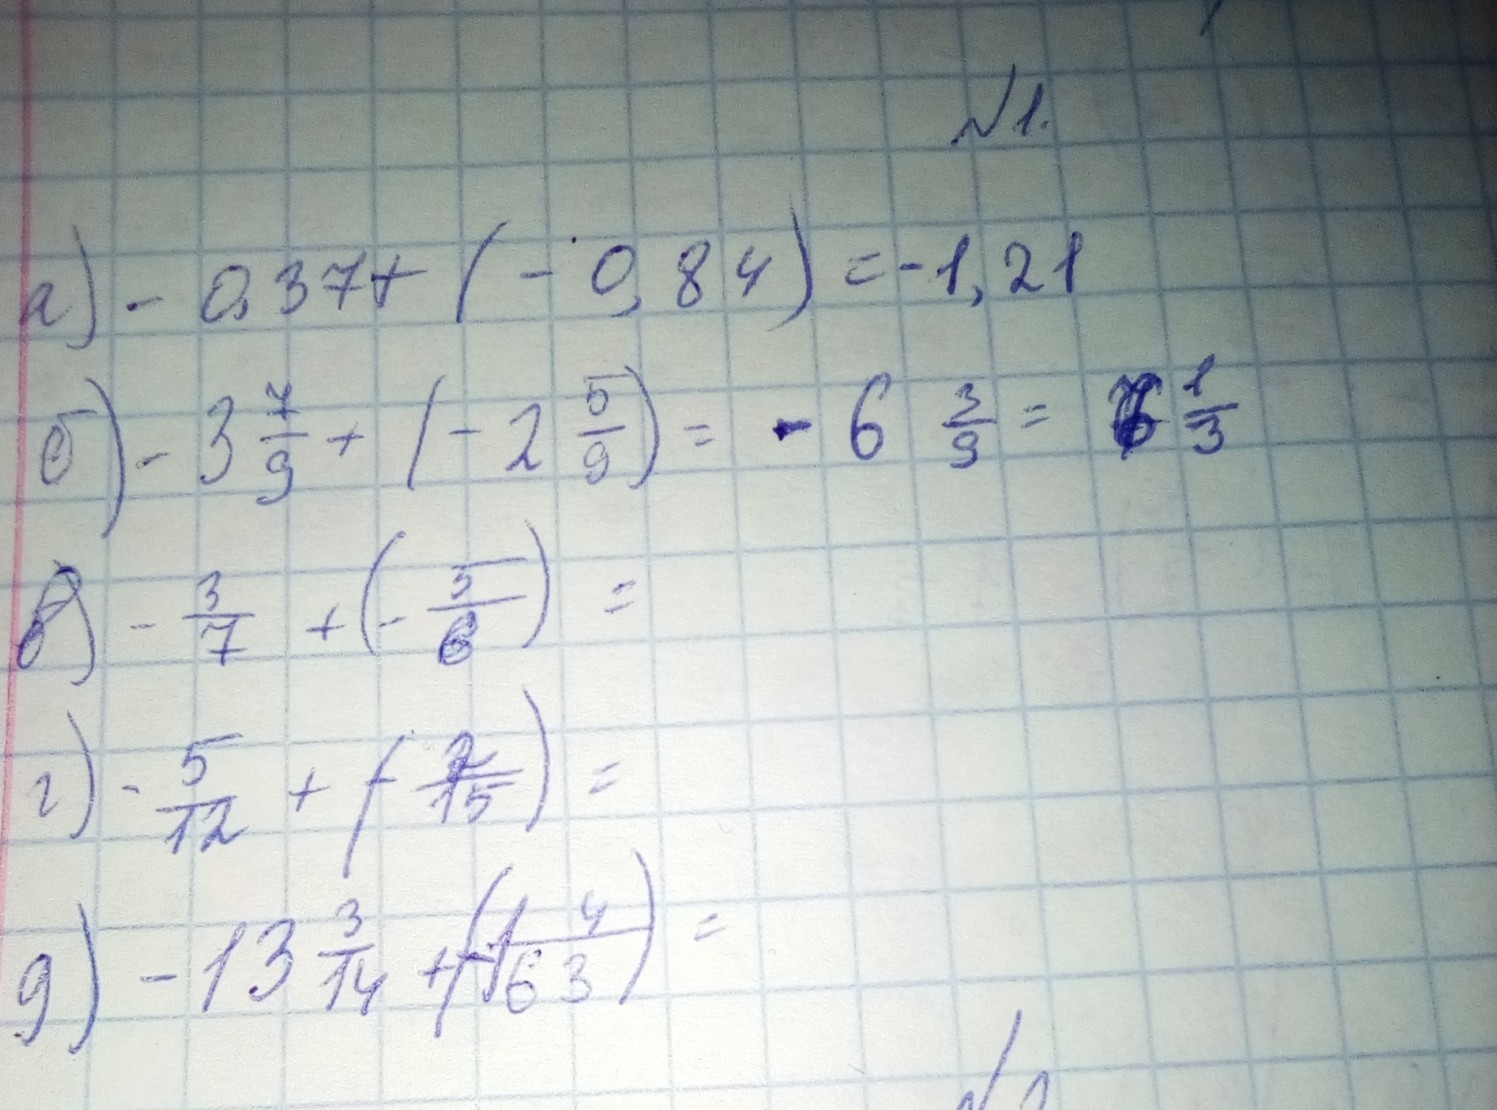 №1.
а) - 0,37 + (- 0,84) = - 1,21
б) - 3 7/9 + (- 2 5/9) = - 6 3/9 = 6 1/3
в) - 3/7 + (- 5/6) =
г) - 5/12 + (- 2/15) =
д) - 13 3/14 + (-1 4/63) =
№2